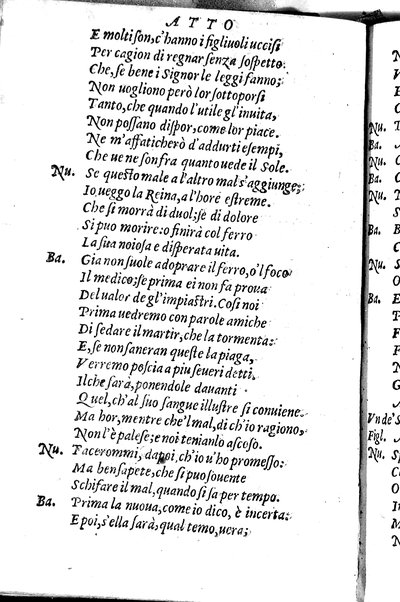 ATTO
E molti son, c'hanno i figliuoli uccisi
Per cagion di regnar senza sospetto:
Che, se bene i Signor le leggi fanno;
Non uogliono però lor sottoporsi
Tanto, che quando l'utile gl'inuita,
Non possano dispor, come lor piace.
Ne m'affaticherò d'addurti esempi,
Che ue ne son fra quanto uede il Sole.
Nu. Se questo male a l'altro mal s'aggiunge;
Io ueggo la Reina, a l'hore estreme.
Che si morrà di duol; se di dolore
Si puo morire: o finirà col ferro
La sua noiosa e disperata uita.
Ba. Gia non suole adoprare il ferro, o'l foco
Il medico; se prima ei non fa proua
Del ualor de gl'impiastri. Cosi noi
Prima uedremo con parole amiche
Di sedare il martir, che la tormenta:
E, se non saneran queste la piaga,
Verremo poscia a piu seueri detti.
Ilche sarà, ponendole dauanti
Quel, ch'al suo sangue illustre si conuiene.
Ma hor, mentre che'l mal, di ch'io ragiono,
Non l'è palese; e noi tenianlo ascoso.
Nu. Tacerommi, dapoi, ch'io u'ho promesso:
Ma ben sapete, che si puo souente
Schifare il mal, quando si sa per tempo.
Ba. Prima la nuoua, come io dico, è incerta:
E poi, s'ella sarà, qual temo, uera;
Nu.
Ba.
Nu.
Ba.
Nu.
Ba.
Vn de'
Figl.
Nu.